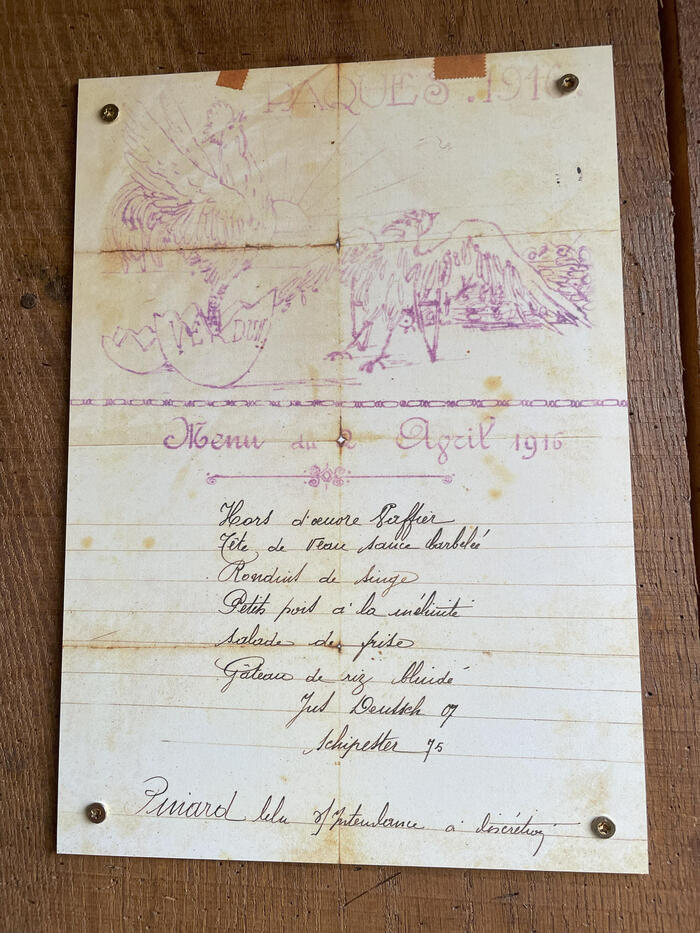 PAQUES . 1916.
VERDUN
Menu du 2 Avril 1916
Hors d'œuvre
Tête de veau sauce barbelée
Rondins de singe
Petits pois à la mélinite
salade de frise
Gâteau de riz blindé
Jus Deutsch 07
schipester 75
Pinard s/Intendance à discrétion